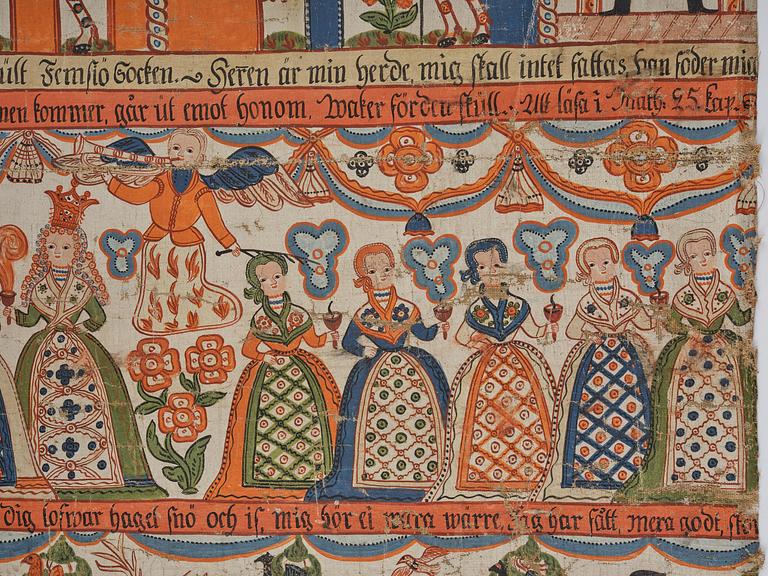 ült Femsiö Socken. ~ Herren är min herde, mig skall intet fattas, han föder mig
men kommer, går üt emot honom, Waker förden skull. Att läsa i Math: 25 kap.
dig lofwar hagel snö och is, mig bör ei wara wärre, Jag har fått, mera godt,